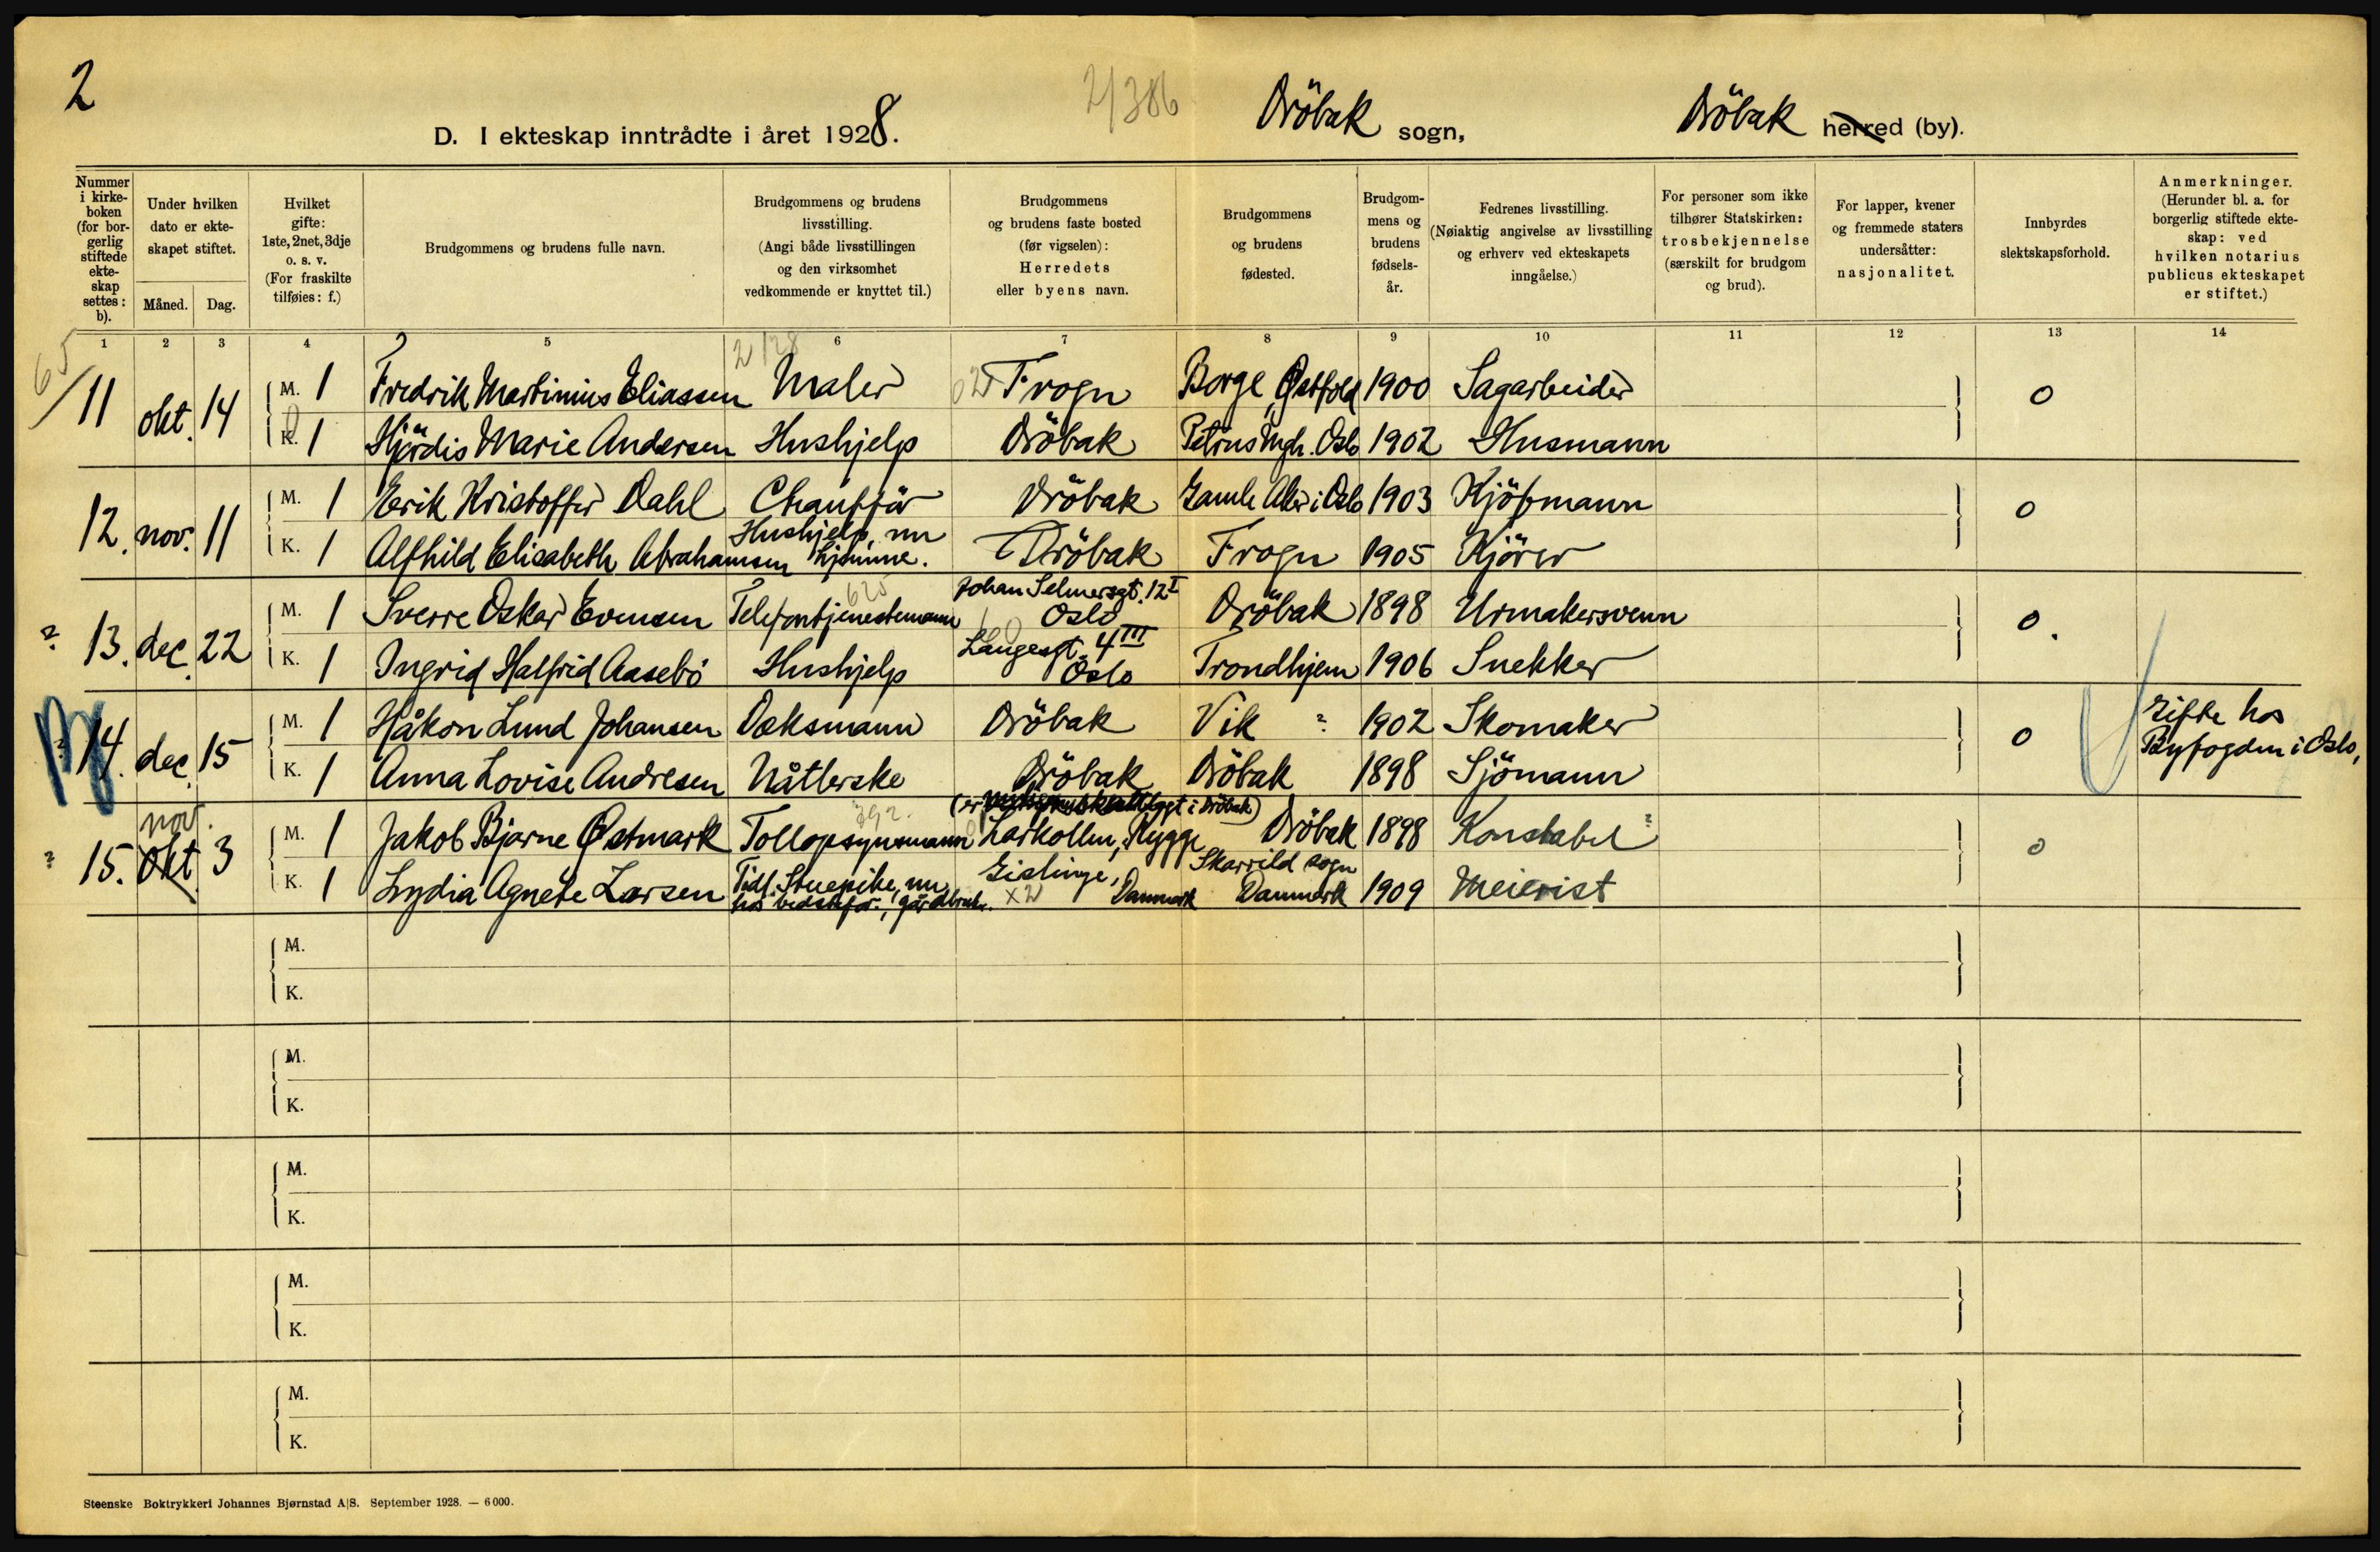 2
2/386
D. I ekteskap inntrådte i året 1928. Dröbak sogn, Dröbak herred (by).
Nummer i kirke-boken (for bor-gerlig stiftede ekte-skap settes: b).
Under hvilken dato er ekte-skapet stiftet.
Måned. Dag.
Hvilket gifte: 1ste, 2net, 3dje o. s. v. (For fraskilte tilføies: f.)
Brudgommens og brudens fulle navn.
Brudgommens og brudens livsstilling. (Angi både livsstillingen og den virksomhet vedkommende er knyttet til.)
Brudgommens og brudens faste bosted (før vigselen): Herredets eller byens navn.
Brudgommens og brudens fødested.
Brudgom-mens og brudens fødsels-år.
Fedrenes livsstilling. (Nøiaktig angivelse av livsstilling og erhverv ved ekteskapets inngåelse.)
For personer som ikke tilhører Statskirken: trosbekjennelse (særskilt for brudgom og brud).
For lapper, kvener og fremmede staters undersåtter: nasjonalitet.
Innbyrdes slektskapsforhold.
Anmerkninger. (Herunder bl. a. for borgerlig stiftede ekte-skap: ved hvilken notarius publicus ekteskapet er stiftet.)
1 2 3 4 5 6 7 8 9 10 11 12 13 14
65
11 okt. 14 M. 1 Fredrik Martinius Eliassen Maler Frogn Borge, Østfold 1900 Sagarbeider 0
K. 1 Hjördis Marie Andersen Hushjelp Dröbak Petrus Mgh. Oslo 1902 Husmann
12. nov. 11 M. 1 Erik Kristoffer Dahl Chaufför Dröbak Gamle Aker i Oslo 1903 Kjöpmann 0
K. 1 Alfhild Elisabeth Abrahamsen Hushjelp, nu hjemme. Dröbak Frogn 1905 Kjörer
? 13. dec. 22 M. 1 Sverre Oskar Evensen Telefontjenestemann Johan Selmersgt. 12 I Oslo Dröbak 1898 Urmakersvenn 0.
K. 1 Ingrid Halfrid Aasebö Hushjelp Langesgt. 4 III Oslo Trondhjem 1906 Snekker
14. dec. 15 M. 1 Håkon Lund Johansen Dæksmann Dröbak Vik ? 1902 Skomaker 0 Gifte hos Byfogden i Oslo,
K. 1 Anna Lovise Andresen Nåtlerske Dröbak Dröbak 1898 Sjömann
? 15. okt. nov. 3 M. 1 Jakob Bjarne Østmark Tollopsynsmann Larkollen, Rygge Dröbak 1898 Konstabel ? 0
K. 1 Lydia Agnete Larsen Tidl. Stuepike, nu hos bedstefar, gårdbruker. Gislinge, Danmark Skarrild sogn Danmark 1909 Meierist
M.
K.
M.
K.
M.
K.
M.
K.
M.
K.
Steenske Boktrykkeri Johannes Bjørnstad A|S. September 1928. — 6000.